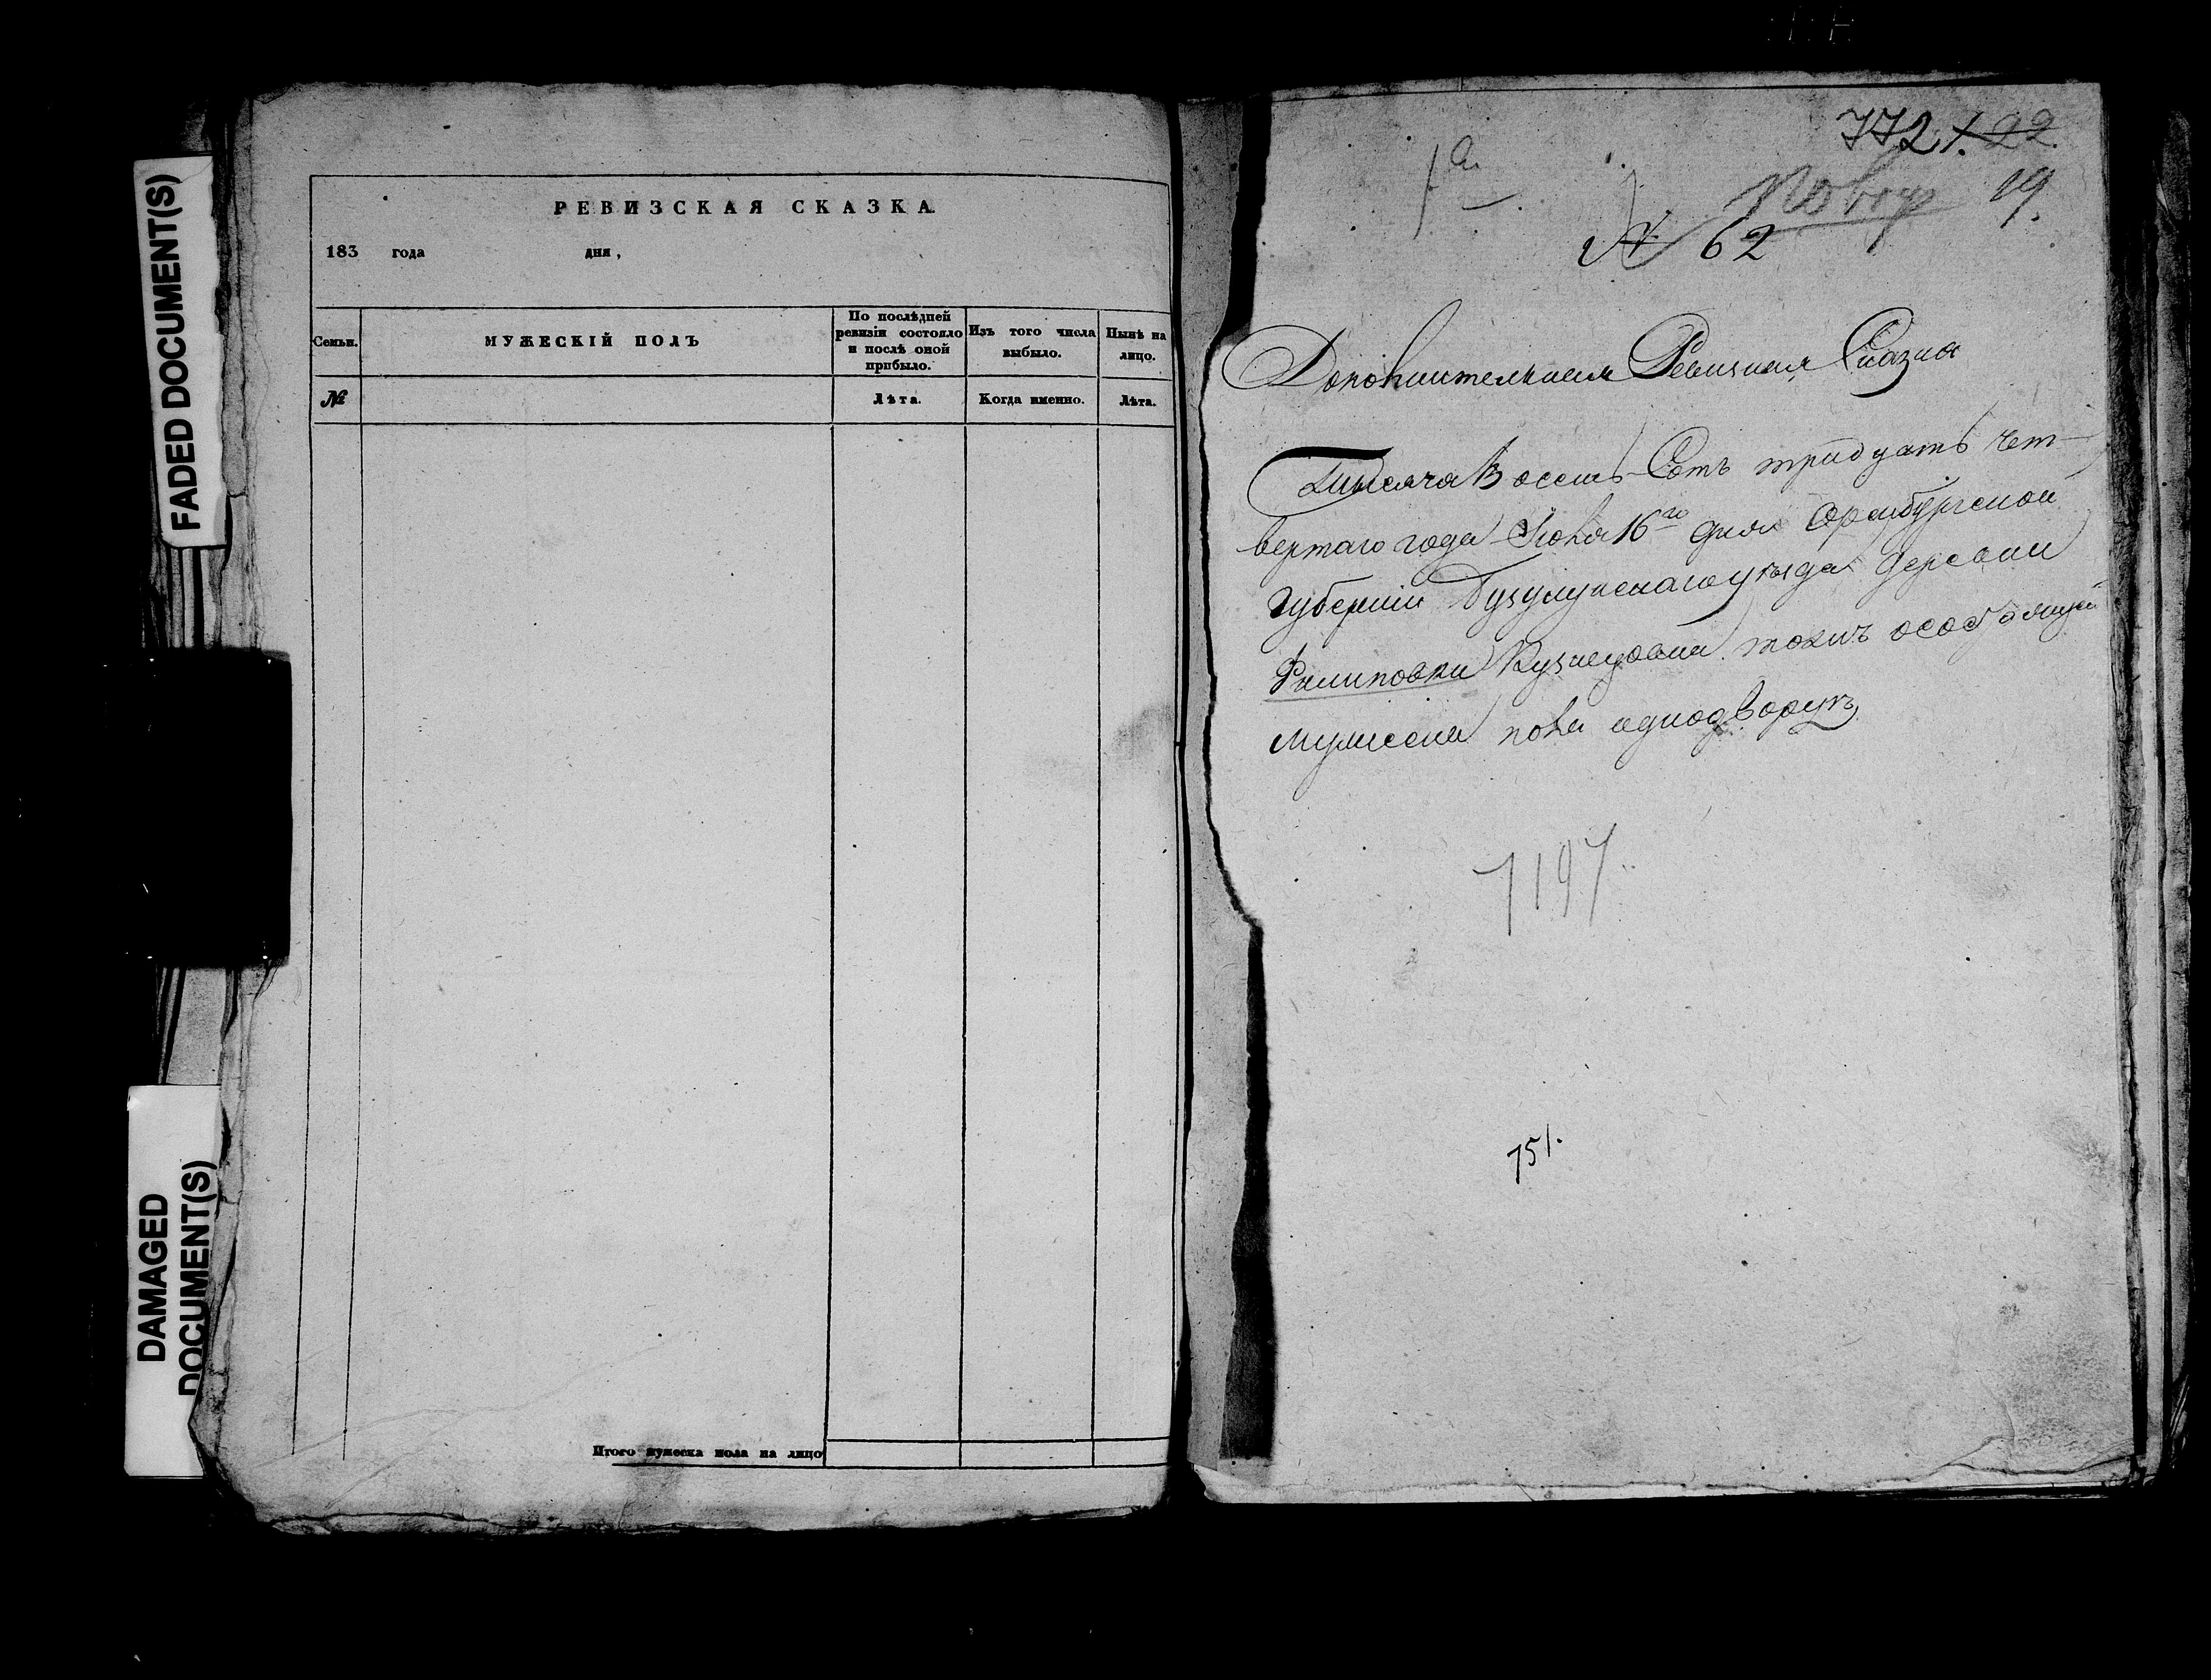 FADED DOCUMENT(S)
DAMAGED
DOCUMENT(S)
РЕВИЗСКАЯ СКАЗКА.
183 года дня,
Семьи.
МУЖЕСКІЙ ПОЛЪ
По послѣдней
ревизіи состояло
и послѣ оной
прибыло.
Изъ того числа
выбыло.
Нынѣ на
лицо.
№
Лѣта.
Когда именно.
Лѣта.
Итого мужеска пола на лицо
772
22.
19.
№ 62
Дополнительная Ревизкая Сказка
Тысяча Восемь Сотъ тридцать чет-
вертаго года Июля 16го дня Оренбургской
Губерніи Бузулукскаго уѣзда деревни
Филиповки Кузнецовки тожъ
мужеска пола однодворцъ
7197
751.